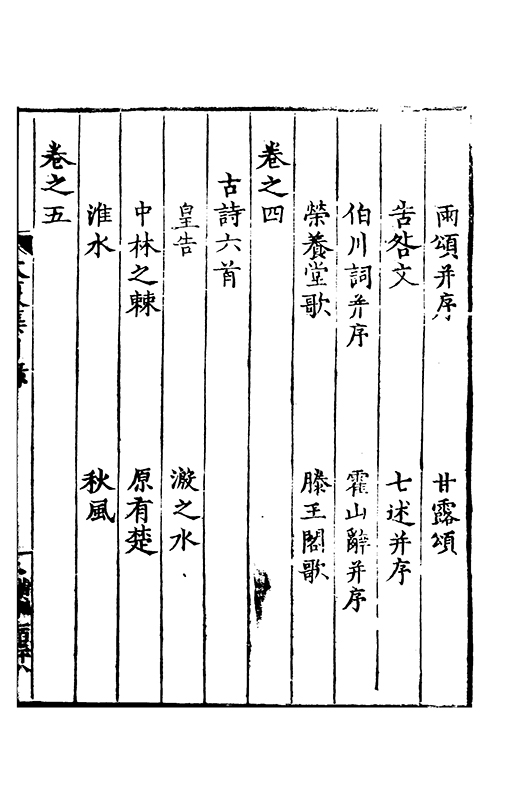 雨頌并序　甘露頌
告咎文　七述并序
伯川詞并序　霍山辭并序
榮養堂歌　滕王閣歌
卷之四
古詩六首
皇告　瀲之水
中林之棘　原有楚
淮水　秋風
卷之五